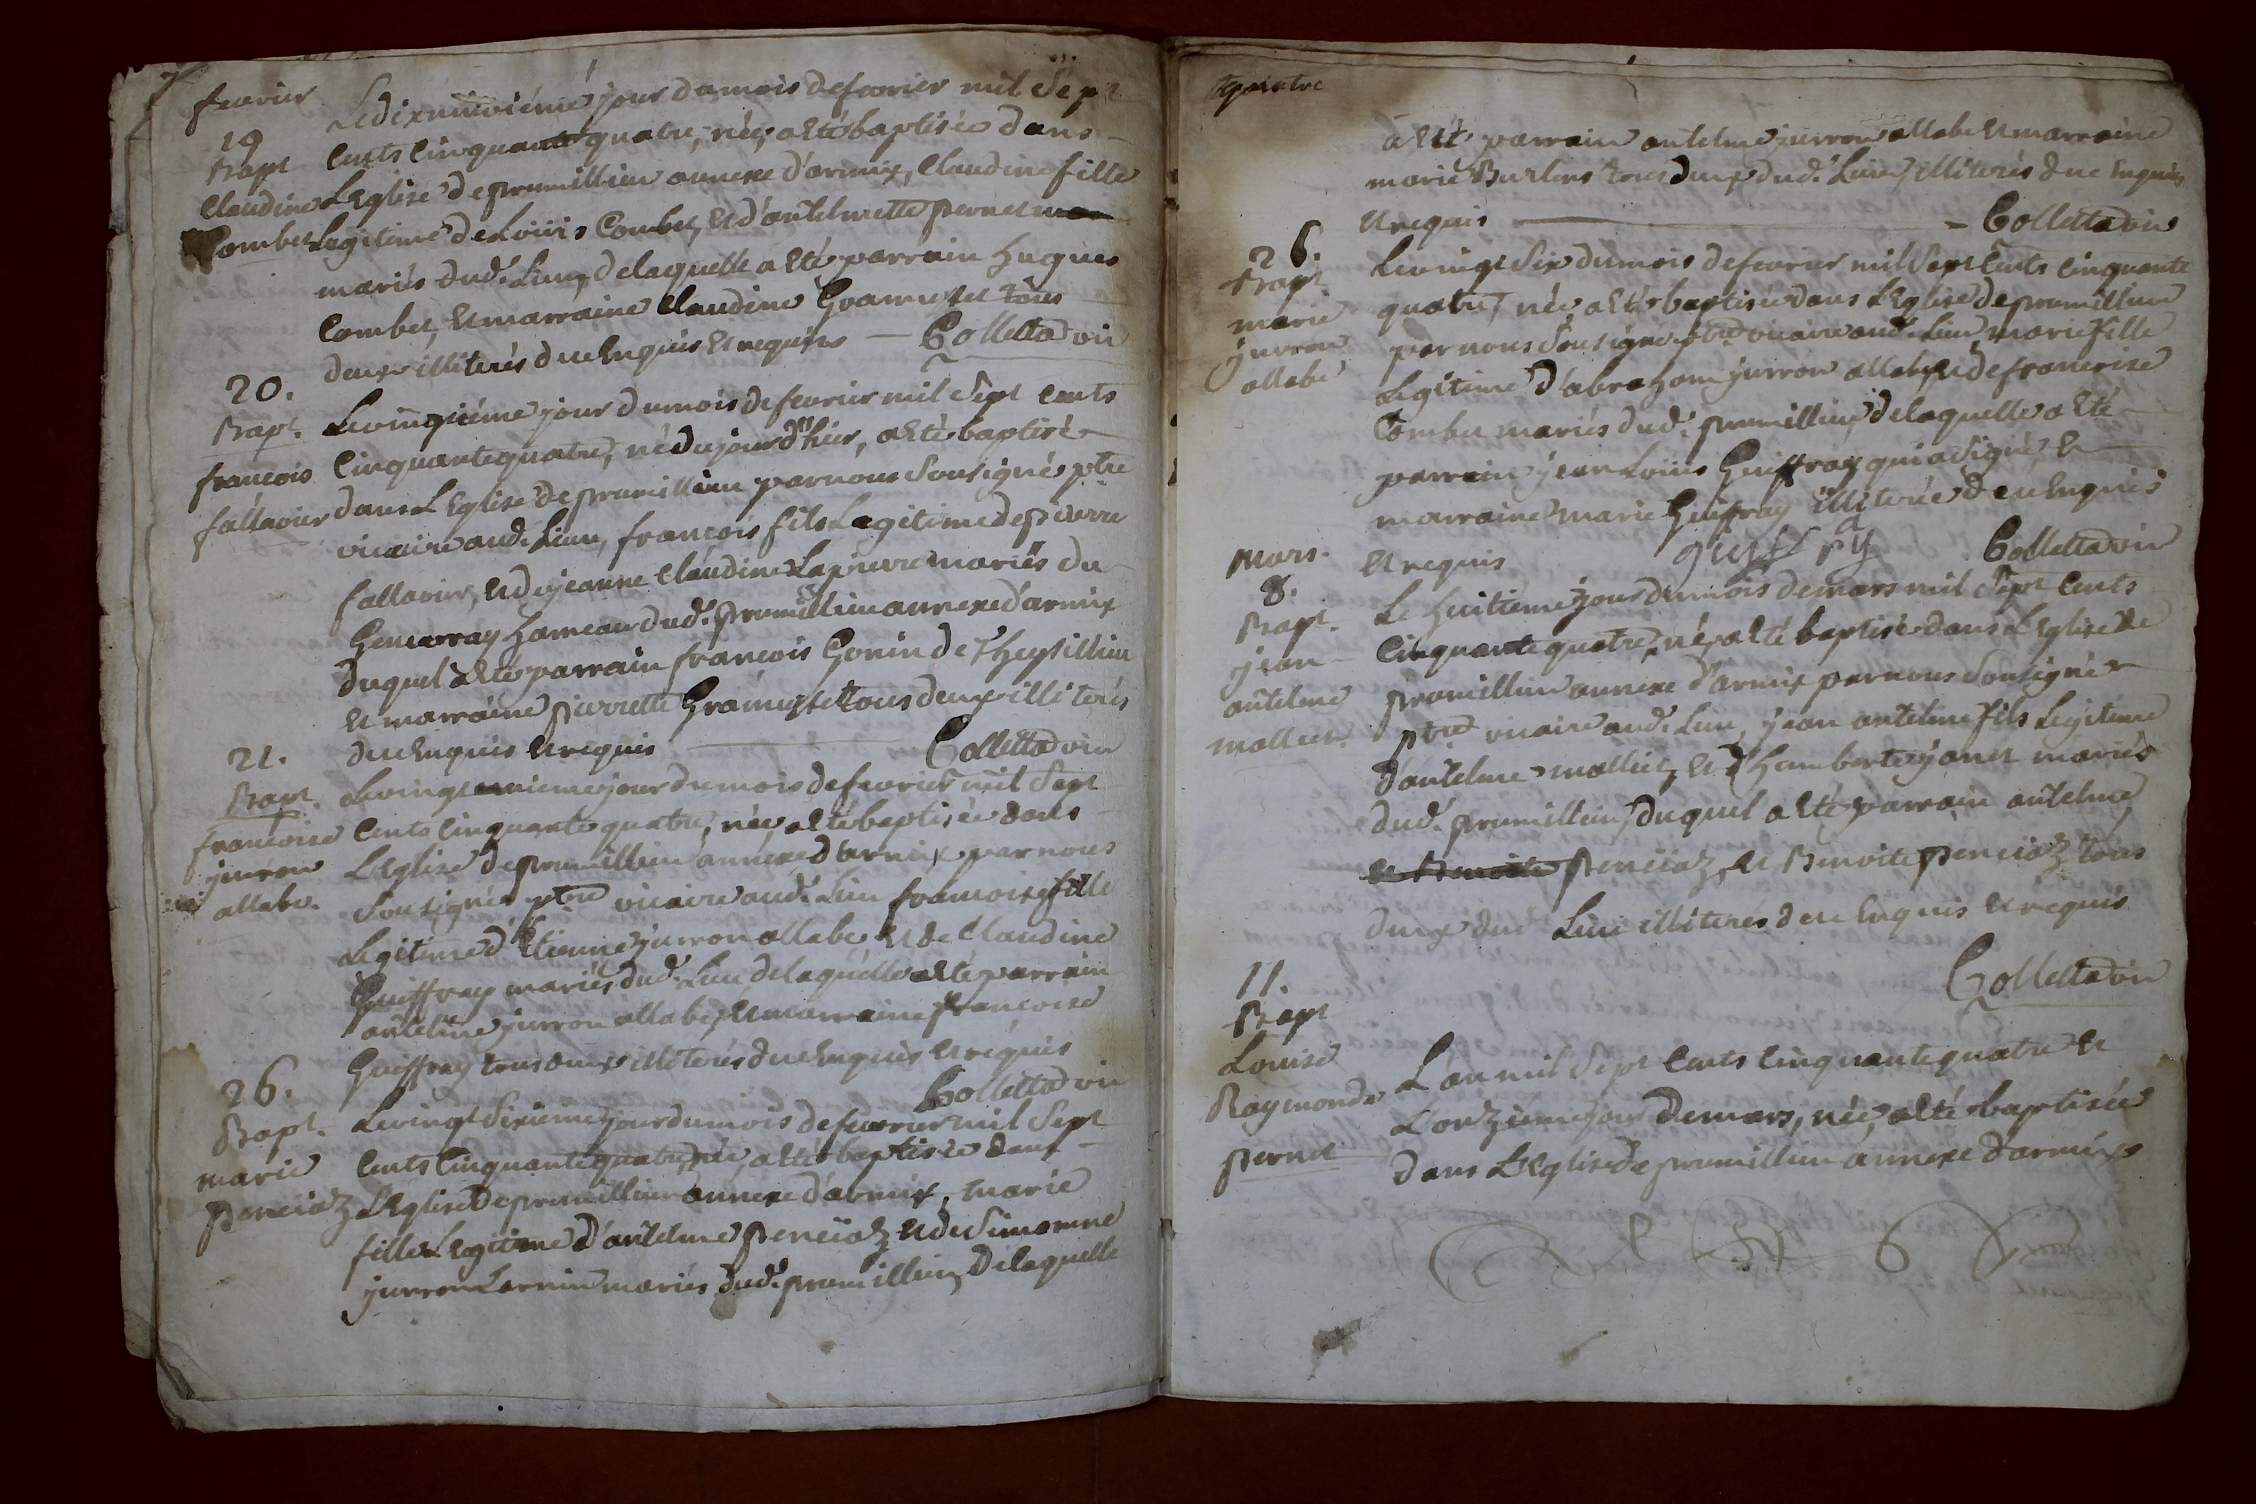 fevrier
19
Bapt
Claudine
Combet
Le dixnuivviéme jour du mois de fevrier mil Sept
Cents Cinquante quatre, née, a été baptisée dans
L'Eglise de prumillieu annexe d'armix, Claudine fille
Legitime de Loüis Combet, et d'antelmette pernet
mariés dud. Lieu, de laquelle a été parrain hugues
Combet, et marraine Claudine tous
deux illiterés de ce enquis et requis Colletta vic
20.
Bapt.
francois
fallavier
Le vingtiéme jour du mois de fevrier mil Sept Cents
Cinquante quatre, né du jour d'hier, a été baptisé
dans L'Eglise de prumillieu par nous Sousigné ptre
vicaire aud. Lieu, francois fils Legitime de pierre
fallavier, et de jeanne Claudine Lapierre mariés du
hameau dud. prumillieu annexe d'armix
duquel a été parrain francois Gonin de Theysillieu
et marraine pierrette tous deux illiterés
de ce enquis et requis Colletta vic
21.
Bapt.
francoise
jurron
allabe.
Le vingt unieme jour du mois de fevrier mil Sept
Cents Cinquante quatre, née a été baptisée dans
L'Eglise de prumillieu annexe d'armix par nous
Sousigné ptre vicaire aud. Lieu francoise fille
Legitime d'Etienne jurron allabe et de Claudine
Guiffray mariés dud. Lieu de laquelle a été parrain
antelme jurron allabe, et marraine francoise
Guiffray tous deux illiterés de ce enquis et requis
Colletta vic
26.
Bapt.
marie
penciaz
Le vingt Sixieme jour du mois de fevrier mil Sept
Cents Cinquante quatre, née, a été baptisée dans
L'Eglise de prumillieu annexe d'armix, marie
fille Legitime d'antelme penciaz et de Simonne
jurron Lornin mariés dud. prumillieu, de laquelle
a été parrain antelme jurron allabe et marraine
marie Burlens tous deux dud. Lieu, illiterés de ce enquis
et requis Colletta vic
26.
Bapt.
marie
jurron
allabe
Le vingt Six du mois de fevrier mil Sept Cents Cinquante
quatre, née, a été baptisée dans L'Eglise de prumillieu
par nous Sousigné ptre vicaire aud. Lieu, marie fille
Legitime d'abraham jurron allabe, et de francoise
Combet mariés dud. prumillieu, de laquelle a été
parrain jean Loüis Guiffray qui a Signé, et
marraine marie Guiffray illiterée de ce enquis
et requis Colletta vic
mars.
8.
Bapt.
jean
antelme
molliet.
Le huitieme jour du mois de mars mil Sept Cents
Cinquante quatre, né, a été baptisé dans L'Eglise de
prumillieu annexe d'armix par nous Sousigné
ptre vicaire aud. Lieu, jean antelme fils Legitime
d'antelme molliet, et d'humberte janet mariés
dud. prumillieu, duquel a été parrain antelme
et Benoite penciaz, et Benoite penciaz tous
deux dud Lieu illiterés de ce enquis et requis
Colletta vic
11.
Bapt
Louise
Raymonde
pernet
L'an mil Sept Cents Cinquante quatre et
L'onziéme jour de mars, née, a été baptisée
dans L'Eglise de prumillieu annexe d'armix